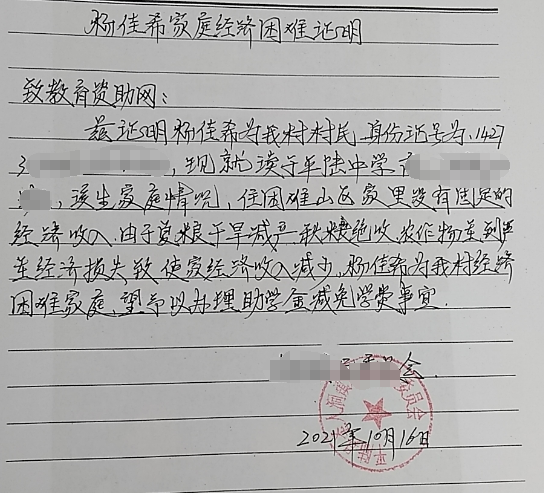 杨佳希家庭经济困难证明
致教育资助网：
兹证明杨佳希为我村村民,身份证号为:1427
3,现就读于平陆中学
,该生家庭情况,住困难山区家里没有固定的
经济收入.由于夏粮干旱减产秋粮绝收,农作物受到严
重经济损失致使家经济收入减少,杨佳希为我村经济
困难家庭,望予以办理助学金减免学费事宜.
会
2021年10月16日